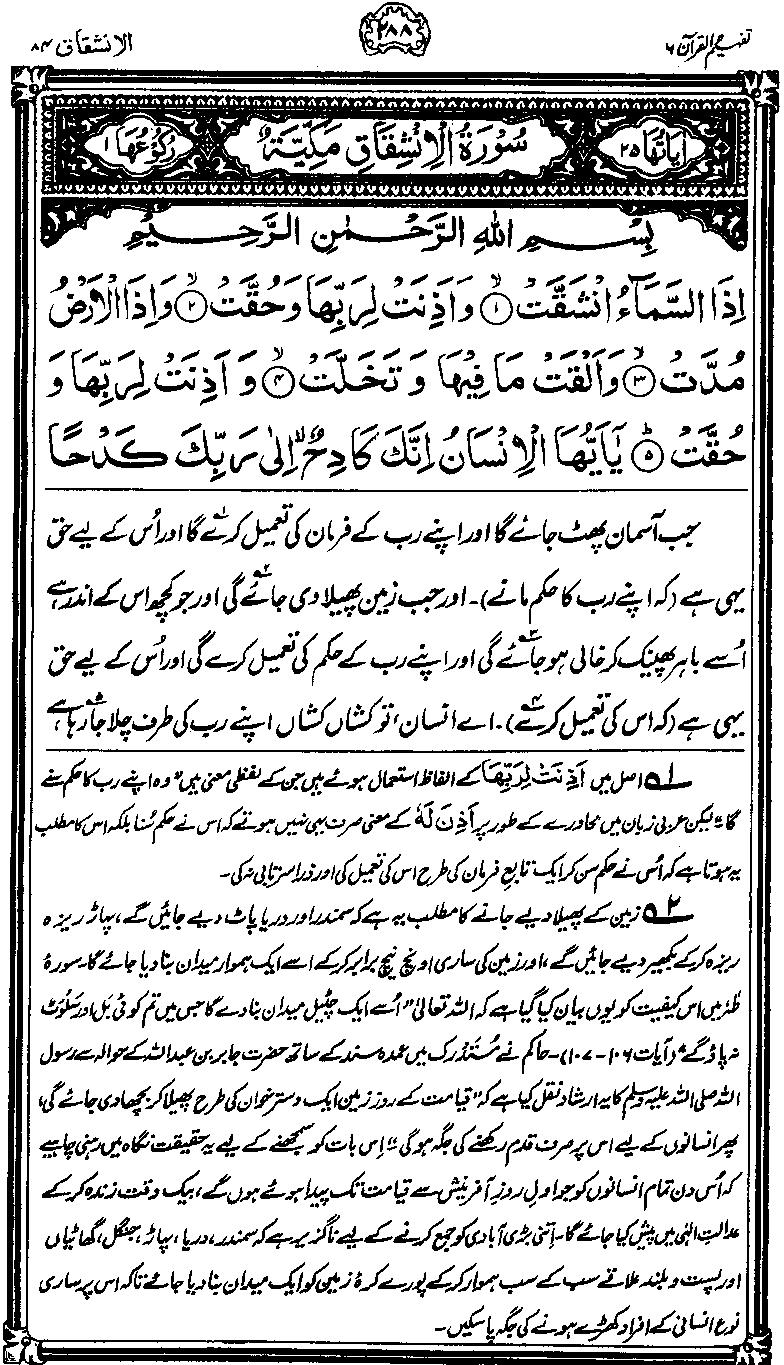 تفہیم القرآن ۶
۲۸۸
الانشقاق ۸۴
اٰیَاتُهَا ۲۵
سُوْرَةُ الْاِنْشِقَاقِ مَكِّیَّةٌ
رُكُوْعُهَا ۱
بِسْمِ اللهِ الرَّحْمٰنِ الرَّحِیْمِ
اِذَا السَّمَآءُ انْشَقَّتْ ۙ﴿۱﴾ وَاَذِنَتْ لِرَبِّهَا وَحُقَّتْ ۙ﴿۲﴾ وَاِذَا الْاَرْضُ
مُدَّتْ ۙ﴿۳﴾ وَاَلْقَتْ مَا فِیْهَا وَ تَخَلَّتْ ۙ﴿۴﴾ وَ اَذِنَتْ لِرَبِّهَا وَ
حُقَّتْ ؕ﴿۵﴾ یٰۤاَیُّهَا الْاِنْسَانُ اِنَّكَ كَادِحٌ اِلٰی رَبِّكَ كَدْحًا
جب آسمان پھٹ جائے گا اور اپنے رب کے فرمان کی تعمیل کرے گا۱ اور اُس کے لیے حق
یہی ہے (کہ اپنے رب کا حکم مانے)۔ اور جب زمین پھیلا دی جائے گی۲ اور جو کچھ اس کے اندر ہے
اُسے باہر پھینک کر خالی ہو جائے گی۳ اور اپنے رب کے حکم کی تعمیل کرے گی اور اُس کے لیے حق
یہی ہے (کہ اس کی تعمیل کرے)۴۔ اے انسان، تو کشاں کشاں اپنے رب کی طرف چلا جا رہا ہے۵
۱ اصل میں اَذِنَتْ لِرَبِّهَا کے الفاظ استعمال ہوئے ہیں جن کے لفظی معنی ہیں ”وہ اپنے رب کا حکم سنے
گا“ لیکن عربی زبان میں محاورے کے طور پر اَذِنَ لَهٗ کے معنی صرف یہی نہیں ہوتے کہ اس نے حکم سُنا بلکہ اس کا مطلب
یہ ہوتا ہے کہ اُس نے حکم سن کر ایک تابعِ فرمان کی طرح اس کی تعمیل کی اور ذرا سرتابی نہ کی۔
۲ زمین کے پھیلا دیے جانے کا مطلب یہ ہے کہ سمندر اور دریا پاٹ دیے جائیں گے، پہاڑ ریزہ
ریزہ کر کے بکھیر دیے جائیں گے، اور زمین کی ساری اونچ نیچ برابر کر کے اسے ایک ہموار میدان بنا دیا جائے گا۔ سورۂ
طٰہٰ میں اس کیفیت کو یوں بیان کیا گیا ہے کہ اللہ تعالیٰ ”اُسے ایک چٹیل میدان بنا دے گا جس میں تم کوئی بل اور سَلوَٹ
نہ پاؤ گے“ (آیات ۱۰۶-۱۰۷)۔ حاکم نے مُستَدرک میں عمدہ سند کے ساتھ حضرت جابر بن عبداللہ کے حوالہ سے رسول
اللہ صلی اللہ علیہ وسلم کا یہ ارشاد نقل کیا ہے کہ ”قیامت کے روز زمین ایک دسترخوان کی طرح پھیلا کر بچھا دی جائے گی،
پھر انسانوں کے لیے اس پر صرف قدم رکھنے کی جگہ ہو گی“۔ اِس بات کو سمجھنے کے لیے یہ حقیقت نگاہ میں رہنی چاہیے
کہ اُس دن تمام انسانوں کو جو اول روزِ آفرینش سے قیامت تک پیدا ہوئے ہوں گے، بیک وقت زندہ کر کے
عدالتِ الٰہی میں پیش کیا جائے گا۔ اِتنی بڑی آبادی کو جمع کرنے کے لیے ناگزیر ہے کہ سمندر، دریا، پہاڑ، جنگل، گھاٹیاں
اور پست و بلند علاقے سب کے سب ہموار کر کے پورے کرۂ زمین کو ایک میدان بنا دیا جائے تاکہ اس پر ساری
نوع انسانی کے افراد کھڑے ہونے کی جگہ پا سکیں۔